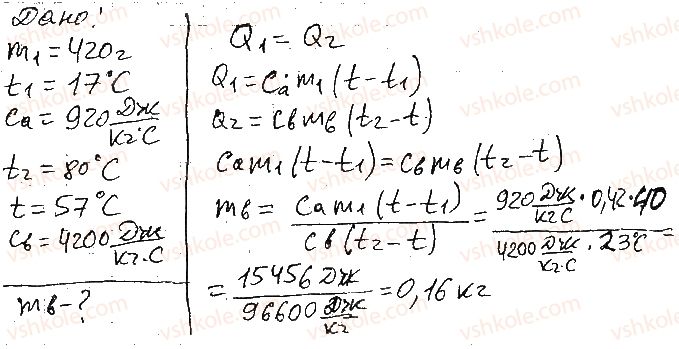 Дано:
m₁ = 420г
t₁ = 17°C
Cа = 920 Дж/кг·°C
t₂ = 80°C
t = 57°C
Cв = 4200 Дж/кг·C
mв - ?
Q₁ = Q₂
Q₁ = Cа m₁ (t - t₁)
Q₂ = Cв mв (t₂ - t)
Cа m₁ (t - t₁) = Cв mв (t₂ - t)
mв = Cа m₁ (t - t₁) / Cв (t₂ - t) = 920 Дж/кг C · 0,42 · 40 / 4200 Дж/кг·C · 23°C =
= 15456 Дж / 96600 Дж/кг = 0,16 кг
vshkole.com